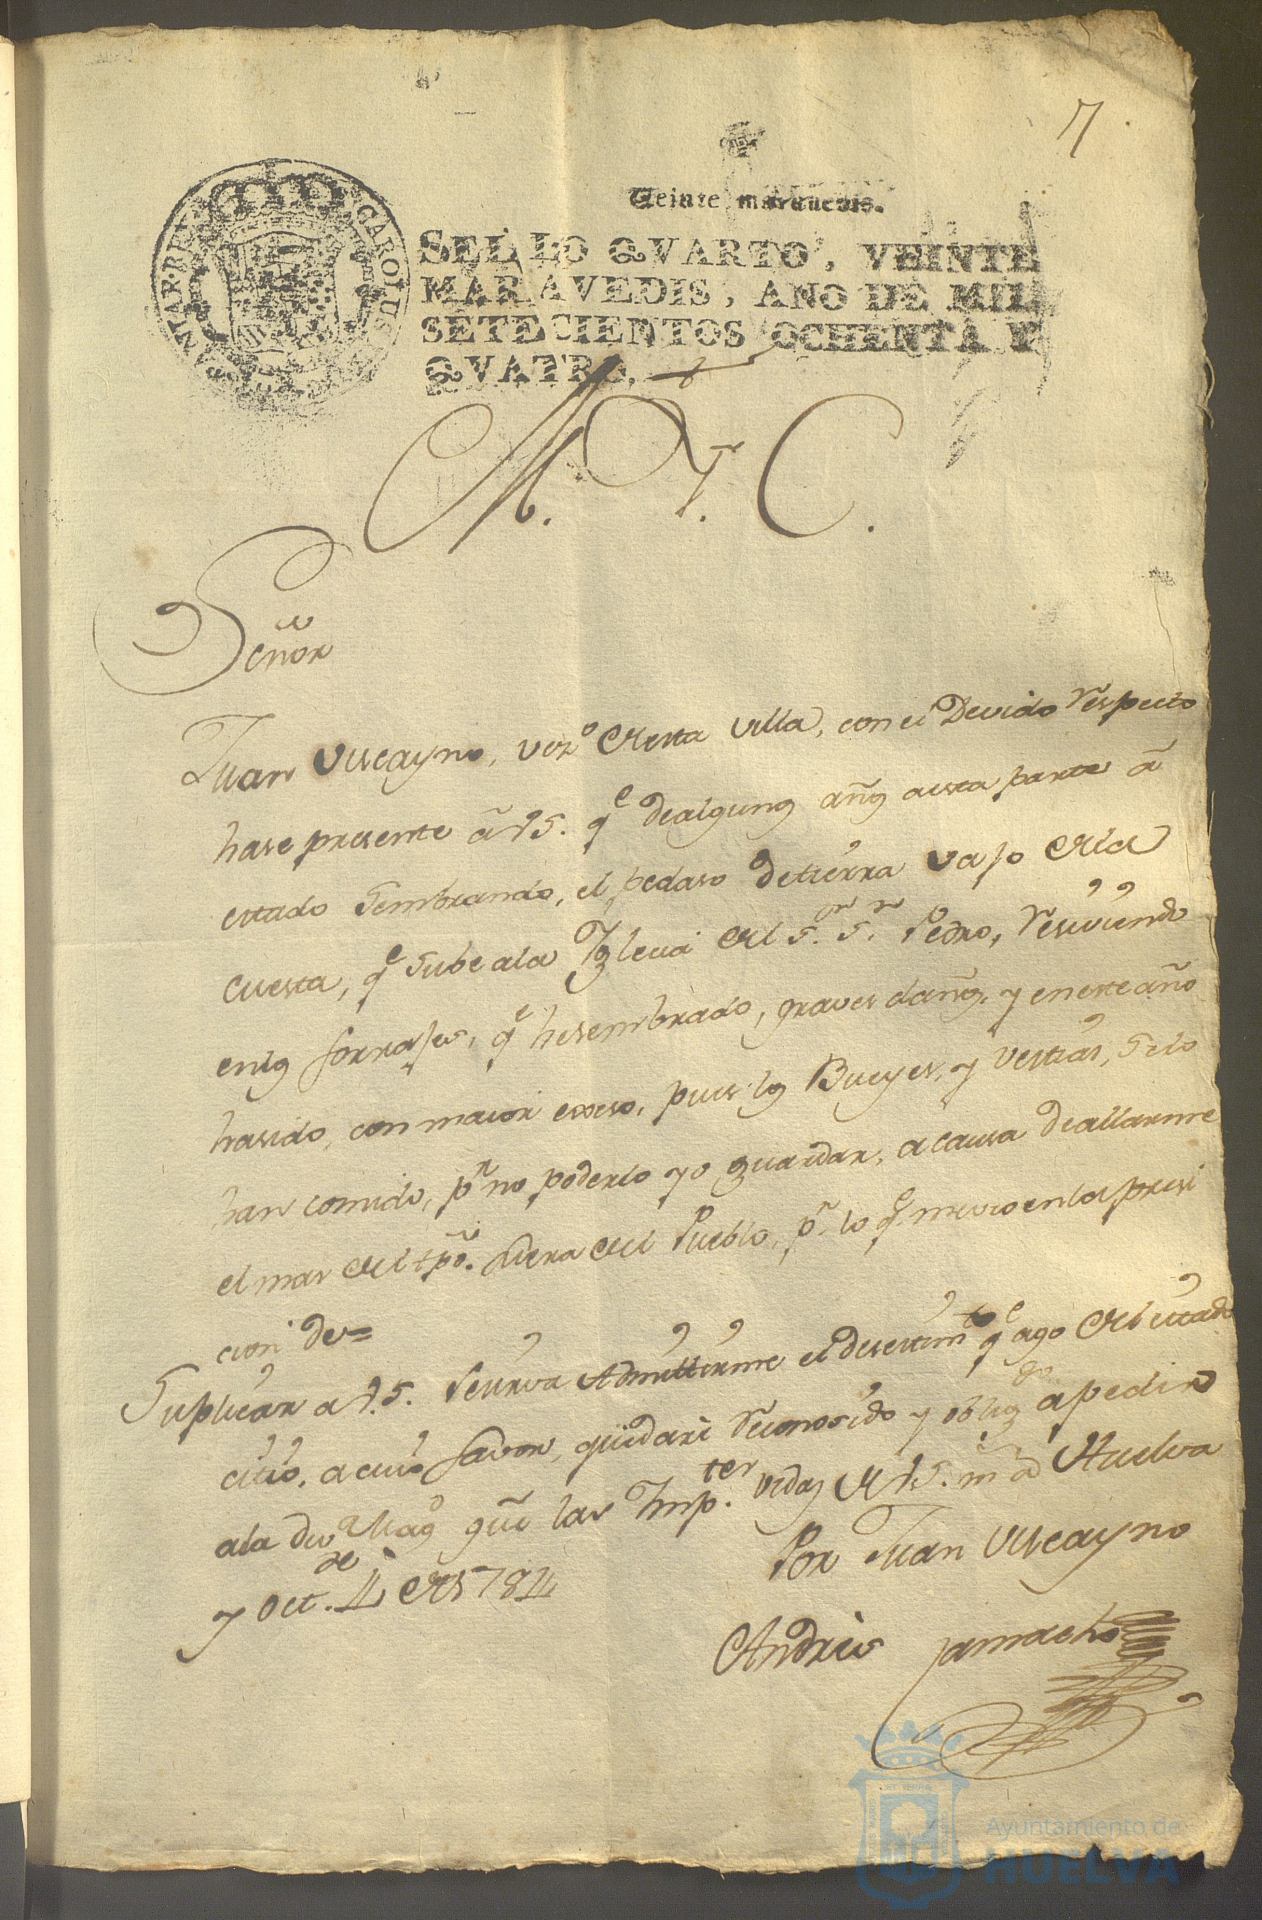 7
Veinte maravedis.
SELLO QVARTO, VEINTE
MARAVEDIS, AÑO DE MIL
SETECIENTOS OCHENTA Y
QVATRO.
CAROLUS
M. Y. C.
Señor
Juan Viscayno, vez.º de esta villa, con el Devido respecto
hase presente â V.S. q.e de algunos años a esta parte â
estado sembrando, el pedaso de tierra vajo de la
cuesta, q.e sube a la Yglecia del S.or S.n Pedro, resiviendo
en los forrajes, q.e he sembrado, graves daños, y en este año
ha sido, con maior exseso, pues los Bueyes, y vestias, se lo
han comido, p.r no poderlo yo guardar, a causa de allarme
el mas del tpô. fuera del Pueblo, p.r lo q.e me veo en la presi
cion de=
Suplicar a V.S. se sirva Admittirme el desestim.to q.e ago del citado
citio, a cuio favor, quedarè reconosido y oblig.do a pedir
a la Div.a Mag.d gûe las Ymp.tes vidas de V.S. m.s a.s Huelva
y Oct.re 4 de 1784
Por Juan Viscayno
Andres Camacho
Ayuntamiento de
HUELVA